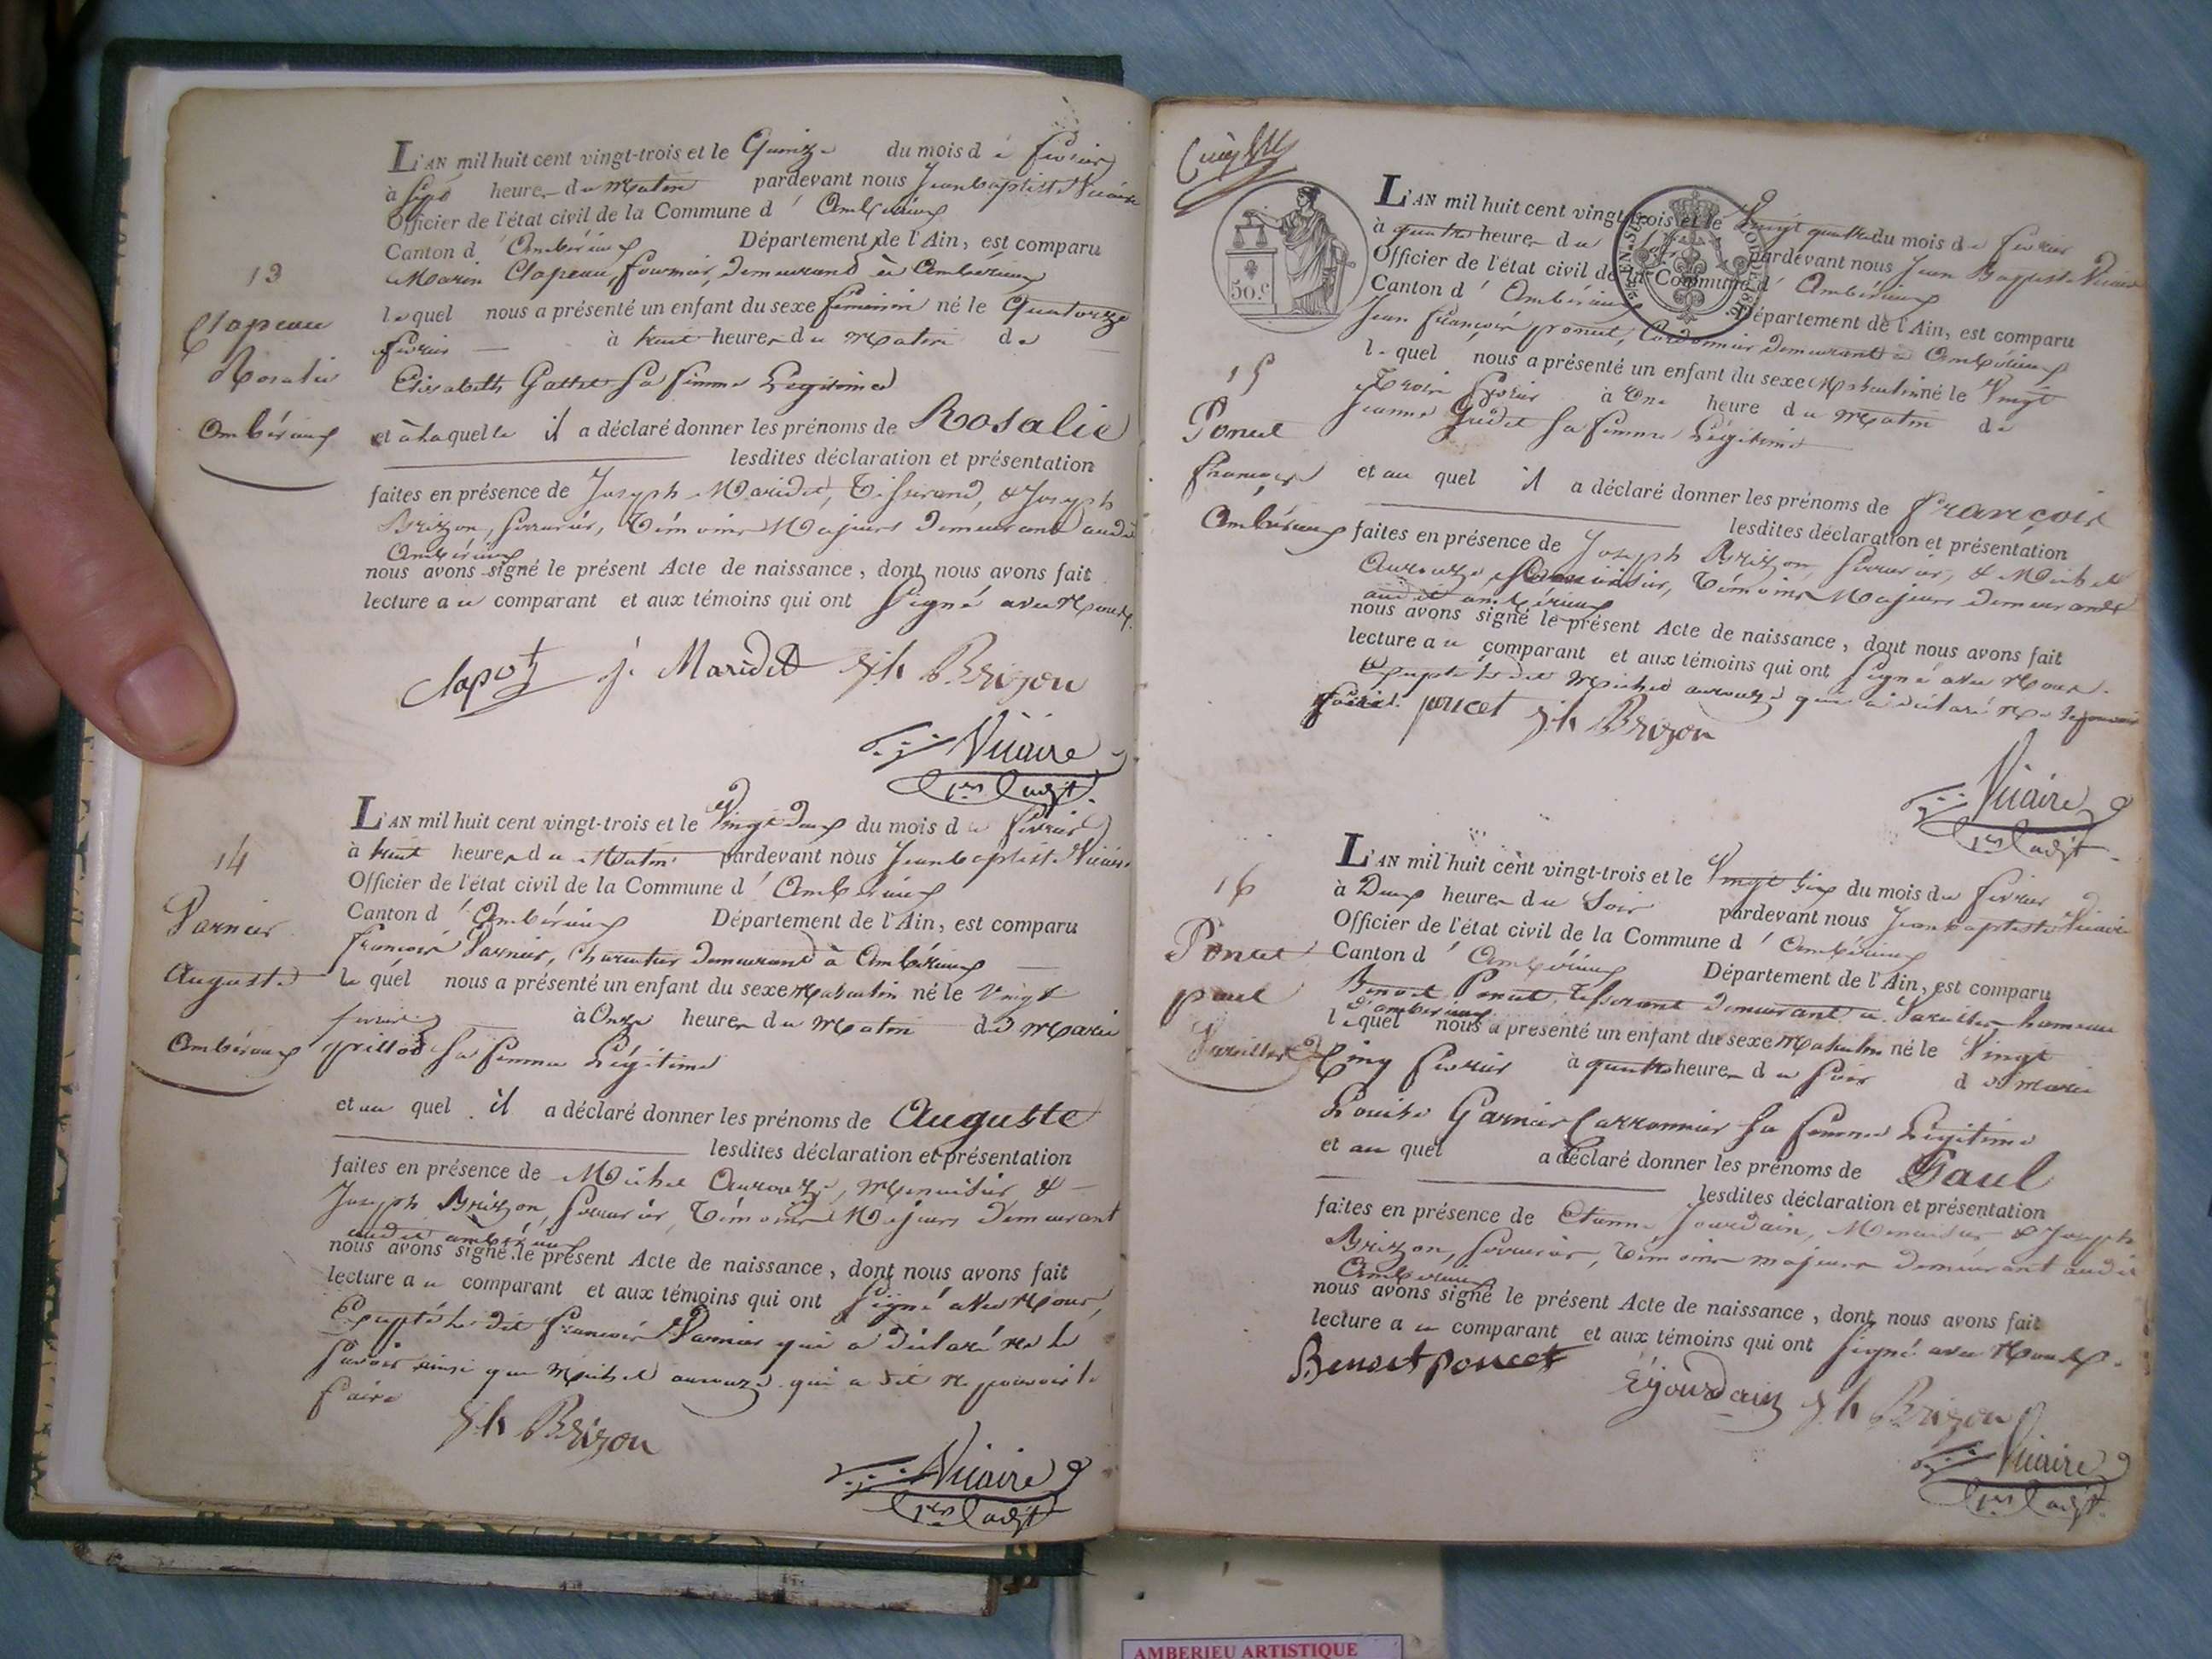 L'AN mil huit cent vingt-trois et le Quinze du mois de février
à sept heures du matin pardevant nous Jean baptiste Vicaire
Officier de l'état civil de la Commune d' Ambérieux
Canton d' Ambérieux Département de l'Ain, est comparu
Marin Clapeau, fournier, demeurand à Ambérieux
13
lequel nous a présenté un enfant du sexe féminin né le Quatorze
Clapeau
février à huit heures du matin de
Rosalie
Elisabeth Gattet sa femme Légitime
Ambérieux
et à laquelle il a déclaré donner les prénoms de Rosalie
lesdites déclaration et présentation
faites en présence de Joseph Maridet, Tisserand, & Joseph
Brizon, serrurier, Témoins Majeurs demeurand audit
Ambérieux
nous avons signé le présent Acte de naissance, dont nous avons fait
lecture au comparant et aux témoins qui ont signé avec Nous.
j. Maridet Jh Brizon
Vicaire
1er adjt.
L'AN mil huit cent vingt-trois et le Vingt deux du mois de février
14
à huit heures du Matin pardevant nous Jean baptiste Vicaire
Officier de l'état civil de la Commune d' Ambérieux
Varnier
Canton d' Ambérieux Département de l'Ain, est comparu
françois Varnier, Charutier demeurand à Ambérieux
Auguste
le quel nous a présenté un enfant du sexe Masculin né le Vingt
février à Onze heures du Matin de Marie
Ambérieux
grillod sa femme Légitime
et au quel il a déclaré donner les prénoms de Auguste
lesdites déclaration et présentation
faites en présence de Michel Aurouze, Menuisier, &
Joseph Brizon, serrurier, Témoins Majeurs demeurant
audit ambérieux
nous avons signé le présent Acte de naissance, dont nous avons fait
lecture au comparant et aux témoins qui ont signé avec Nous,
Excepté le dit françois Varnier qui a déclaré ne le
savoir ainsi que Michel aurouze qui a dit ne pouvoir le
faire
Jh Brizon
Vicaire
1er adjt
50.c
L'AN mil huit cent vingt-trois et le Vingt quatre du mois de février
à quatre heures du soir pardevant nous Jean Baptiste Vicaire
Officier de l'état civil de la Commune d' Ambérieux
Canton d' Ambérieux Département de l'Ain, est comparu
Jean françois poncet, Cordonnier demeurant à Ambérieux
15
le quel nous a présenté un enfant du sexe Masculin né le Vingt
Trois février à Une heure du Matin de
Poncet
Jeanne Gudet sa femme Légitime
françois
et au quel il a déclaré donner les prénoms de François
Ambérieux
lesdites déclaration et présentation
faites en présence de Joseph Brizon, serrurier, & Michel
Aurouze, Menuisier, Témoins Majeurs demeurants
audit ambérieux
nous avons signé le présent Acte de naissance, dont nous avons fait
lecture au comparant et aux témoins qui ont signé avec Nous.
Excepté le dit Michel aurouze qui a déclaré ne le pouvoir
faire. poncet Jh Brizon
Vicaire
1er adjt.
L'AN mil huit cent vingt-trois et le Vingt six du mois de février
16
à Deux heures du Soir pardevant nous Jean baptiste Vicaire
Officier de l'état civil de la Commune d' Ambérieux
Poncet
Canton d' Ambérieux Département de l'Ain, est comparu
Benoit Poncet, Tisserant demeurant à Vareilles, hameau
d'ambérieux
paul
lequel nous a présenté un enfant du sexe Masculin né le Vingt
Vareilles
Cinq février à quatre heures du soir de marie
Louise Garnier Carronnier sa femme Légitime
et au quel a déclaré donner les prénoms de Paul
lesdites déclaration et présentation
faites en présence de Etienne Jourdain, Menuisier & Joseph
Brizon, serrurier, Témoins majeurs demeurant audit
Ambérieux
nous avons signé le présent Acte de naissance, dont nous avons fait
lecture au comparant et aux témoins qui ont signé avec Nous.
Benoit poncet
E jourdain Jh Brizon
Vicaire
1er adjt.
AMBERIEU ARTISTIQUE